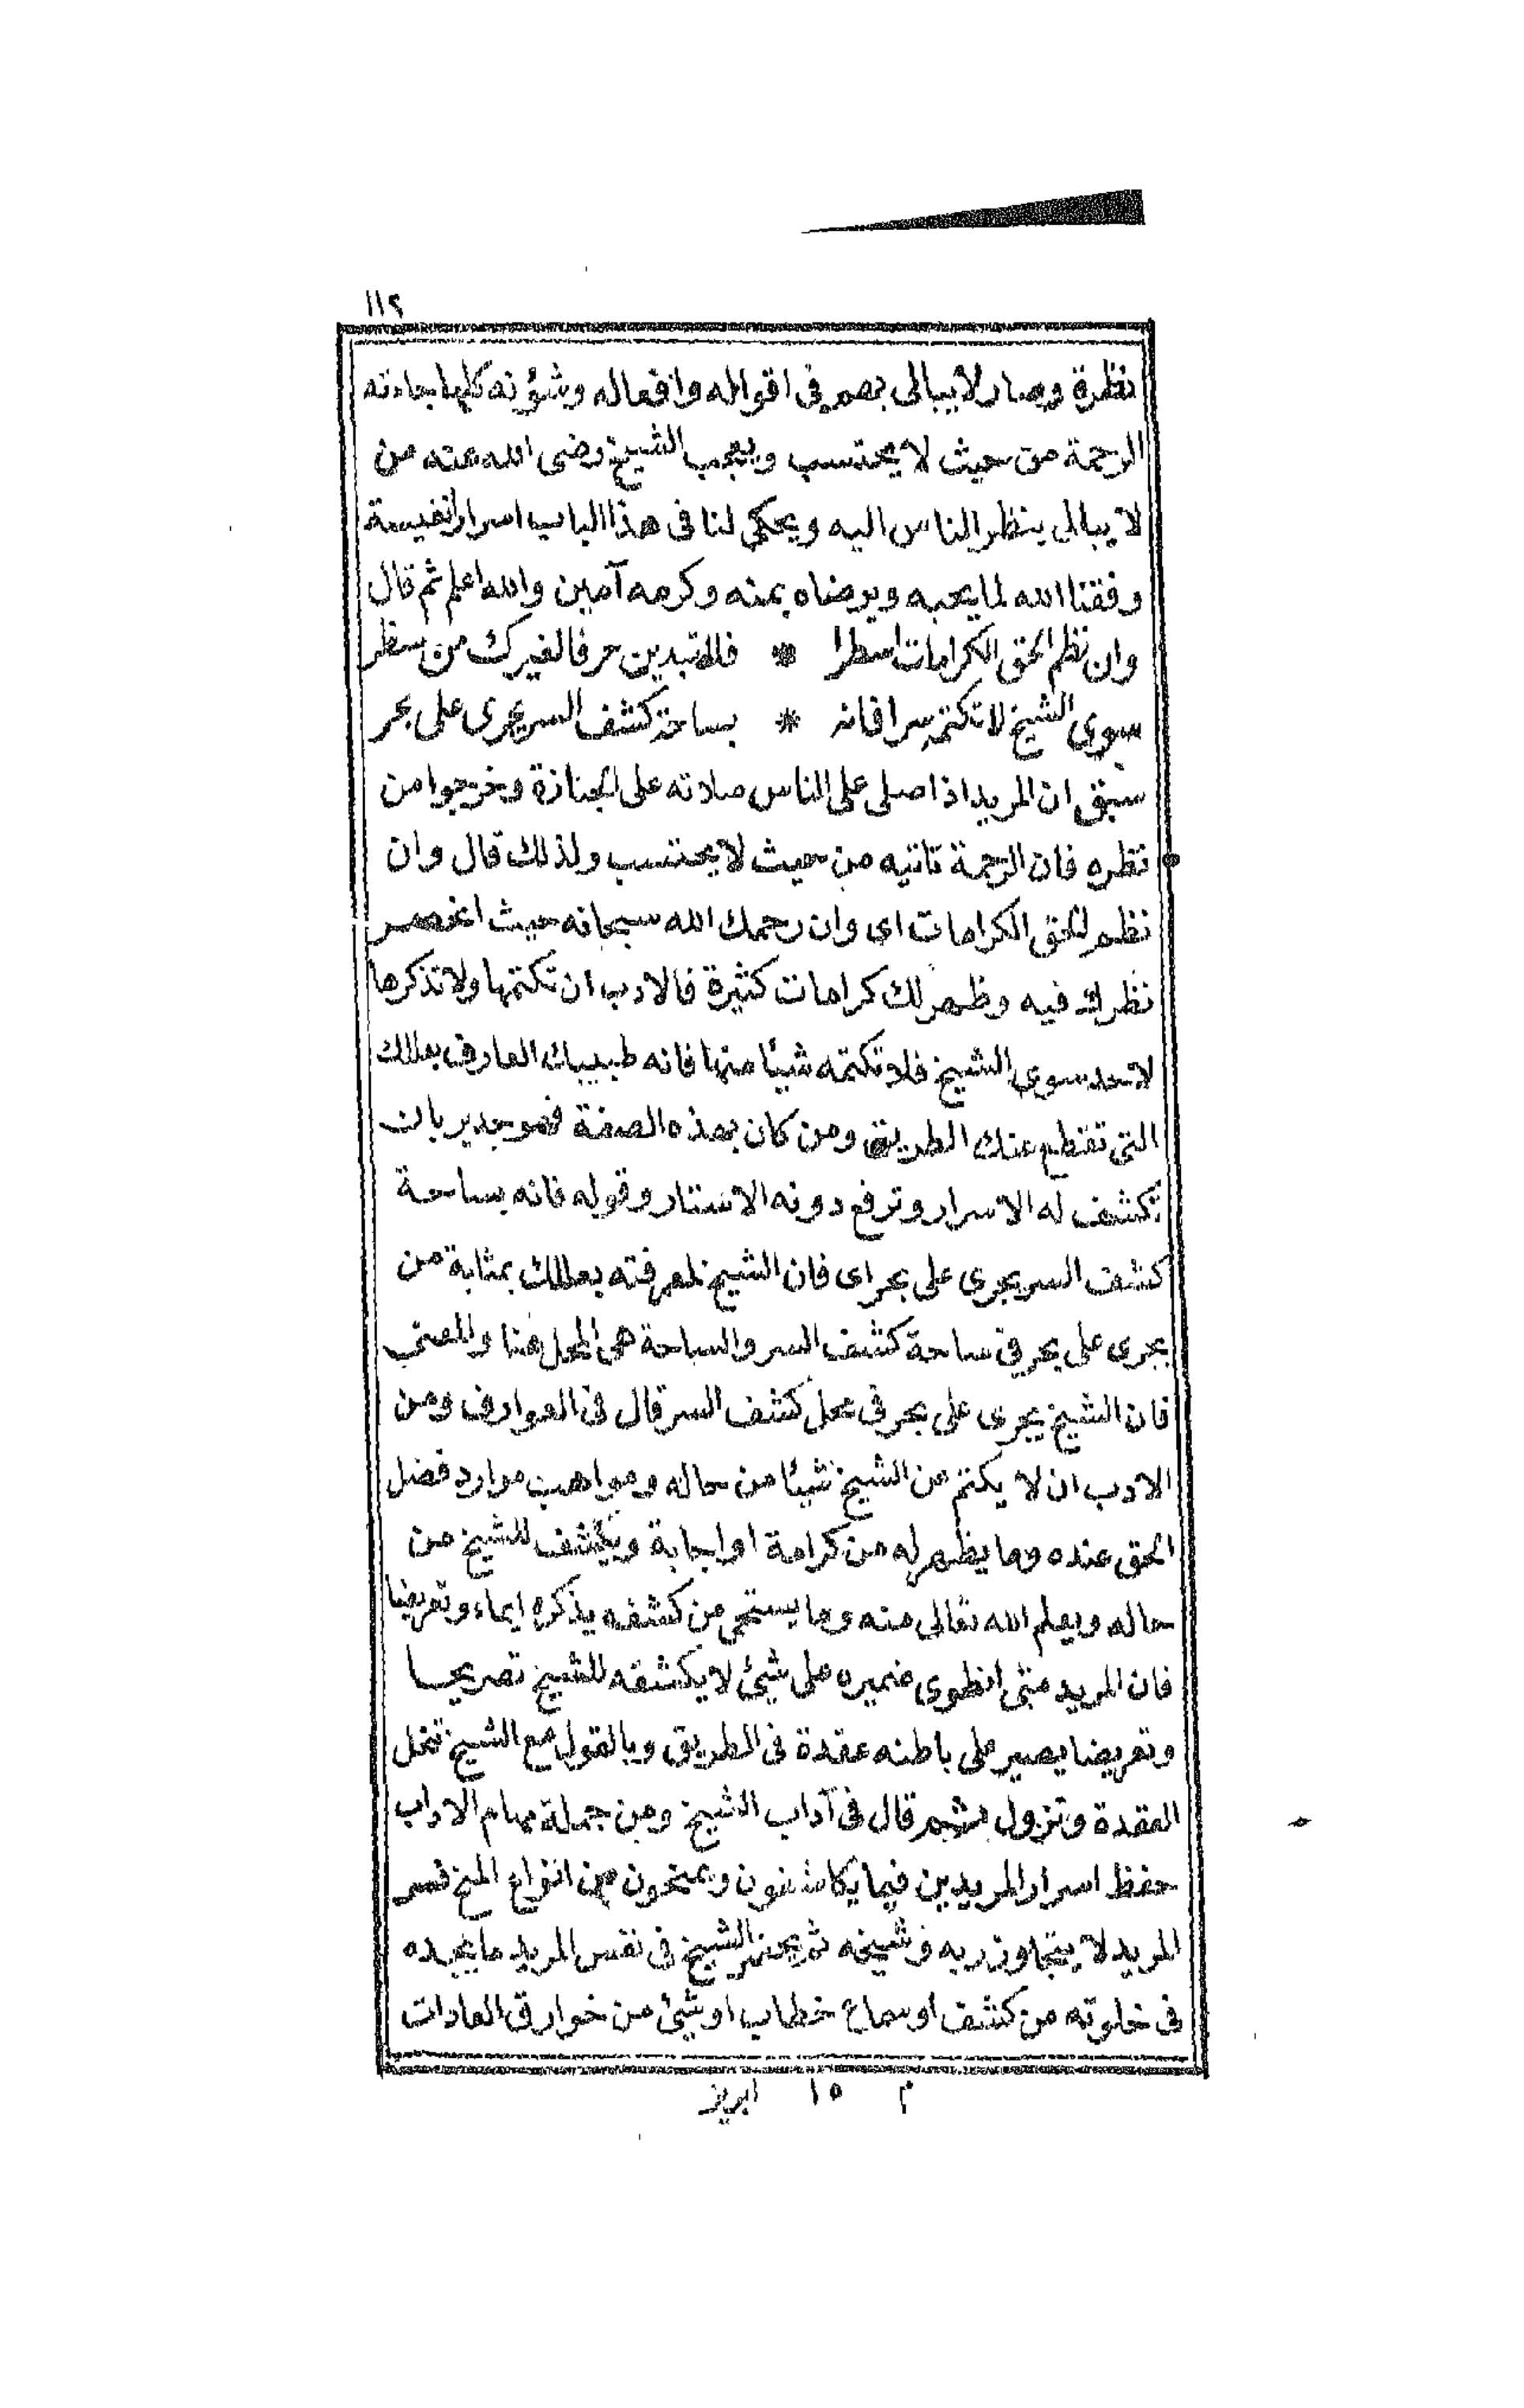 ١١٢
نظرة وصار لا يبالى بهم فى اقواله وافعاله وشؤنه كلها جاءته
الرحمة من حيث لا يحتسب ويعجب الشيخ رضى الله عنه من
لا يبالى بنظر الناس اليه ويحكى لنا فى هذا الباب اسرارا نفيسة
وفقنا الله لما يحبه ويرضاه بمنه وكرمه آمين والله اعلم ثم قال
وان نظم الحق الكرامات اسطرا * فلا تبدين حرفا لغيرك من سطر
سوى الشيخ لا تكتمه سرا فانه * بساحة كشف السر يجرى على بحر
سبق ان المريد اذا صلى على الناس صلاته على الجنازة وخرجوا من
نظره فان الرحمة تاتيه من حيث لا يحتسب ولذلك قال وان
نظم لك الحق الكرامات اى وان رحمك الله سبحانه حيث انحصر
نظرك فيه وظهر لك كرامات كثيرة فالادب ان تكتمها ولا تذكرها
لاحد سوى الشيخ فلا تكتمه شيئا منها فانه طبيبك العارف بعللك
التى تقتطع عنك الطريق ومن كان بهذه الصفة فهو جدير بان
تكشف له الاسرار وترفع دونه الاستار وقوله فانه بساحة
كشف السر يجرى على بحر اى فان الشيخ لمعرفته بعللك بمثابة من
يجرى على بحر فى ساحة كشف السر والساحة هى المحل هنا والمعنى
فان الشيخ يجرى على بحر فى محل كشف السر قال فى العوارف ومن
الادب ان لا يكتم من الشيخ شيئا من حاله ومواهب موارد فضل
الحق عنده وما يظهر له من كرامة او اجابة ويكشف للشيخ من
حاله ويعلم الله تعالى منه وما يستحى من كشفه يذكره ايماء وتعريضا
فان المريد متى انطوى ضميره على شيئ لا يكشفه للشيخ تصريحا
وتعريضا يصير على باطنه عقدة فى الطريق وبالقول مع الشيخ تنحل
العقدة وتزول ثم قال فى آداب الشيخ ومن جملة مهام الاداب
حفظ اسرار المريدين فيما يكاشفون ويمنحون من انواع المنح فسر
المريد لا يتجاوز ربه وشيخه ثم يحقر الشيخ فى نفس المريد ما يجده
فى خلوته من كشف او سماع خطاب او شيئ من خوارق العادات
م ١٥ ابريز